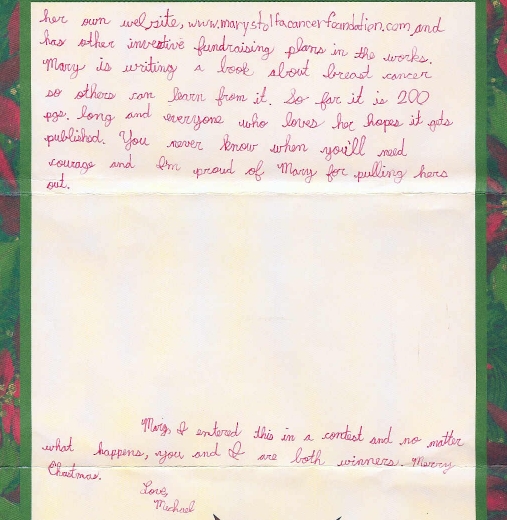 her own website, www.marystolfacancerfoundation.com and
has other investive fundraising plans in the works.
Mary is writing a book about breast cancer
so others can learn from it. So far it is 200
pgs. long and everyone who loves her hopes it gets
published. You never know when you'll need
courage and I'm proud of Mary for pulling hers
out.
I entered this in a contest and no matter
what happens, you and I are both winners. Merry
Christmas.
Love,
Michael